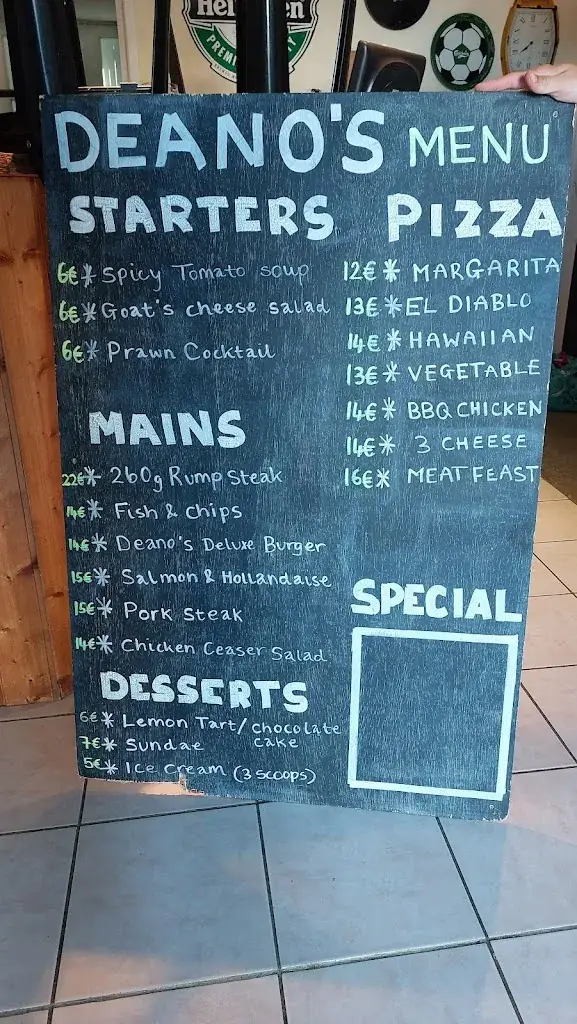 Heineken
PREMIUM
DEANO'S MENU
STARTERS
6€ * Spicy Tomato soup
6€ * Goat's cheese salad
6€ * Prawn Cocktail
MAINS
22€ * 260g Rump Steak
14€ * Fish & chips
14€ * Deano's Deluxe Burger
15€ * Salmon & Hollandaise
15€ * Pork Steak
14€ * Chicken Ceaser Salad
DESSERTS
6€ * Lemon Tart/chocolate
cake
7€ * Sundae
5€ * Ice cream (3 scoops)
PIZZA
12€ * MARGARITA
13€ * EL DIABLO
14€ * HAWAIIAN
13€ * VEGETABLE
14€ * BBQ CHICKEN
14€ * 3 CHEESE
16€ * MEAT FEAST
SPECIAL